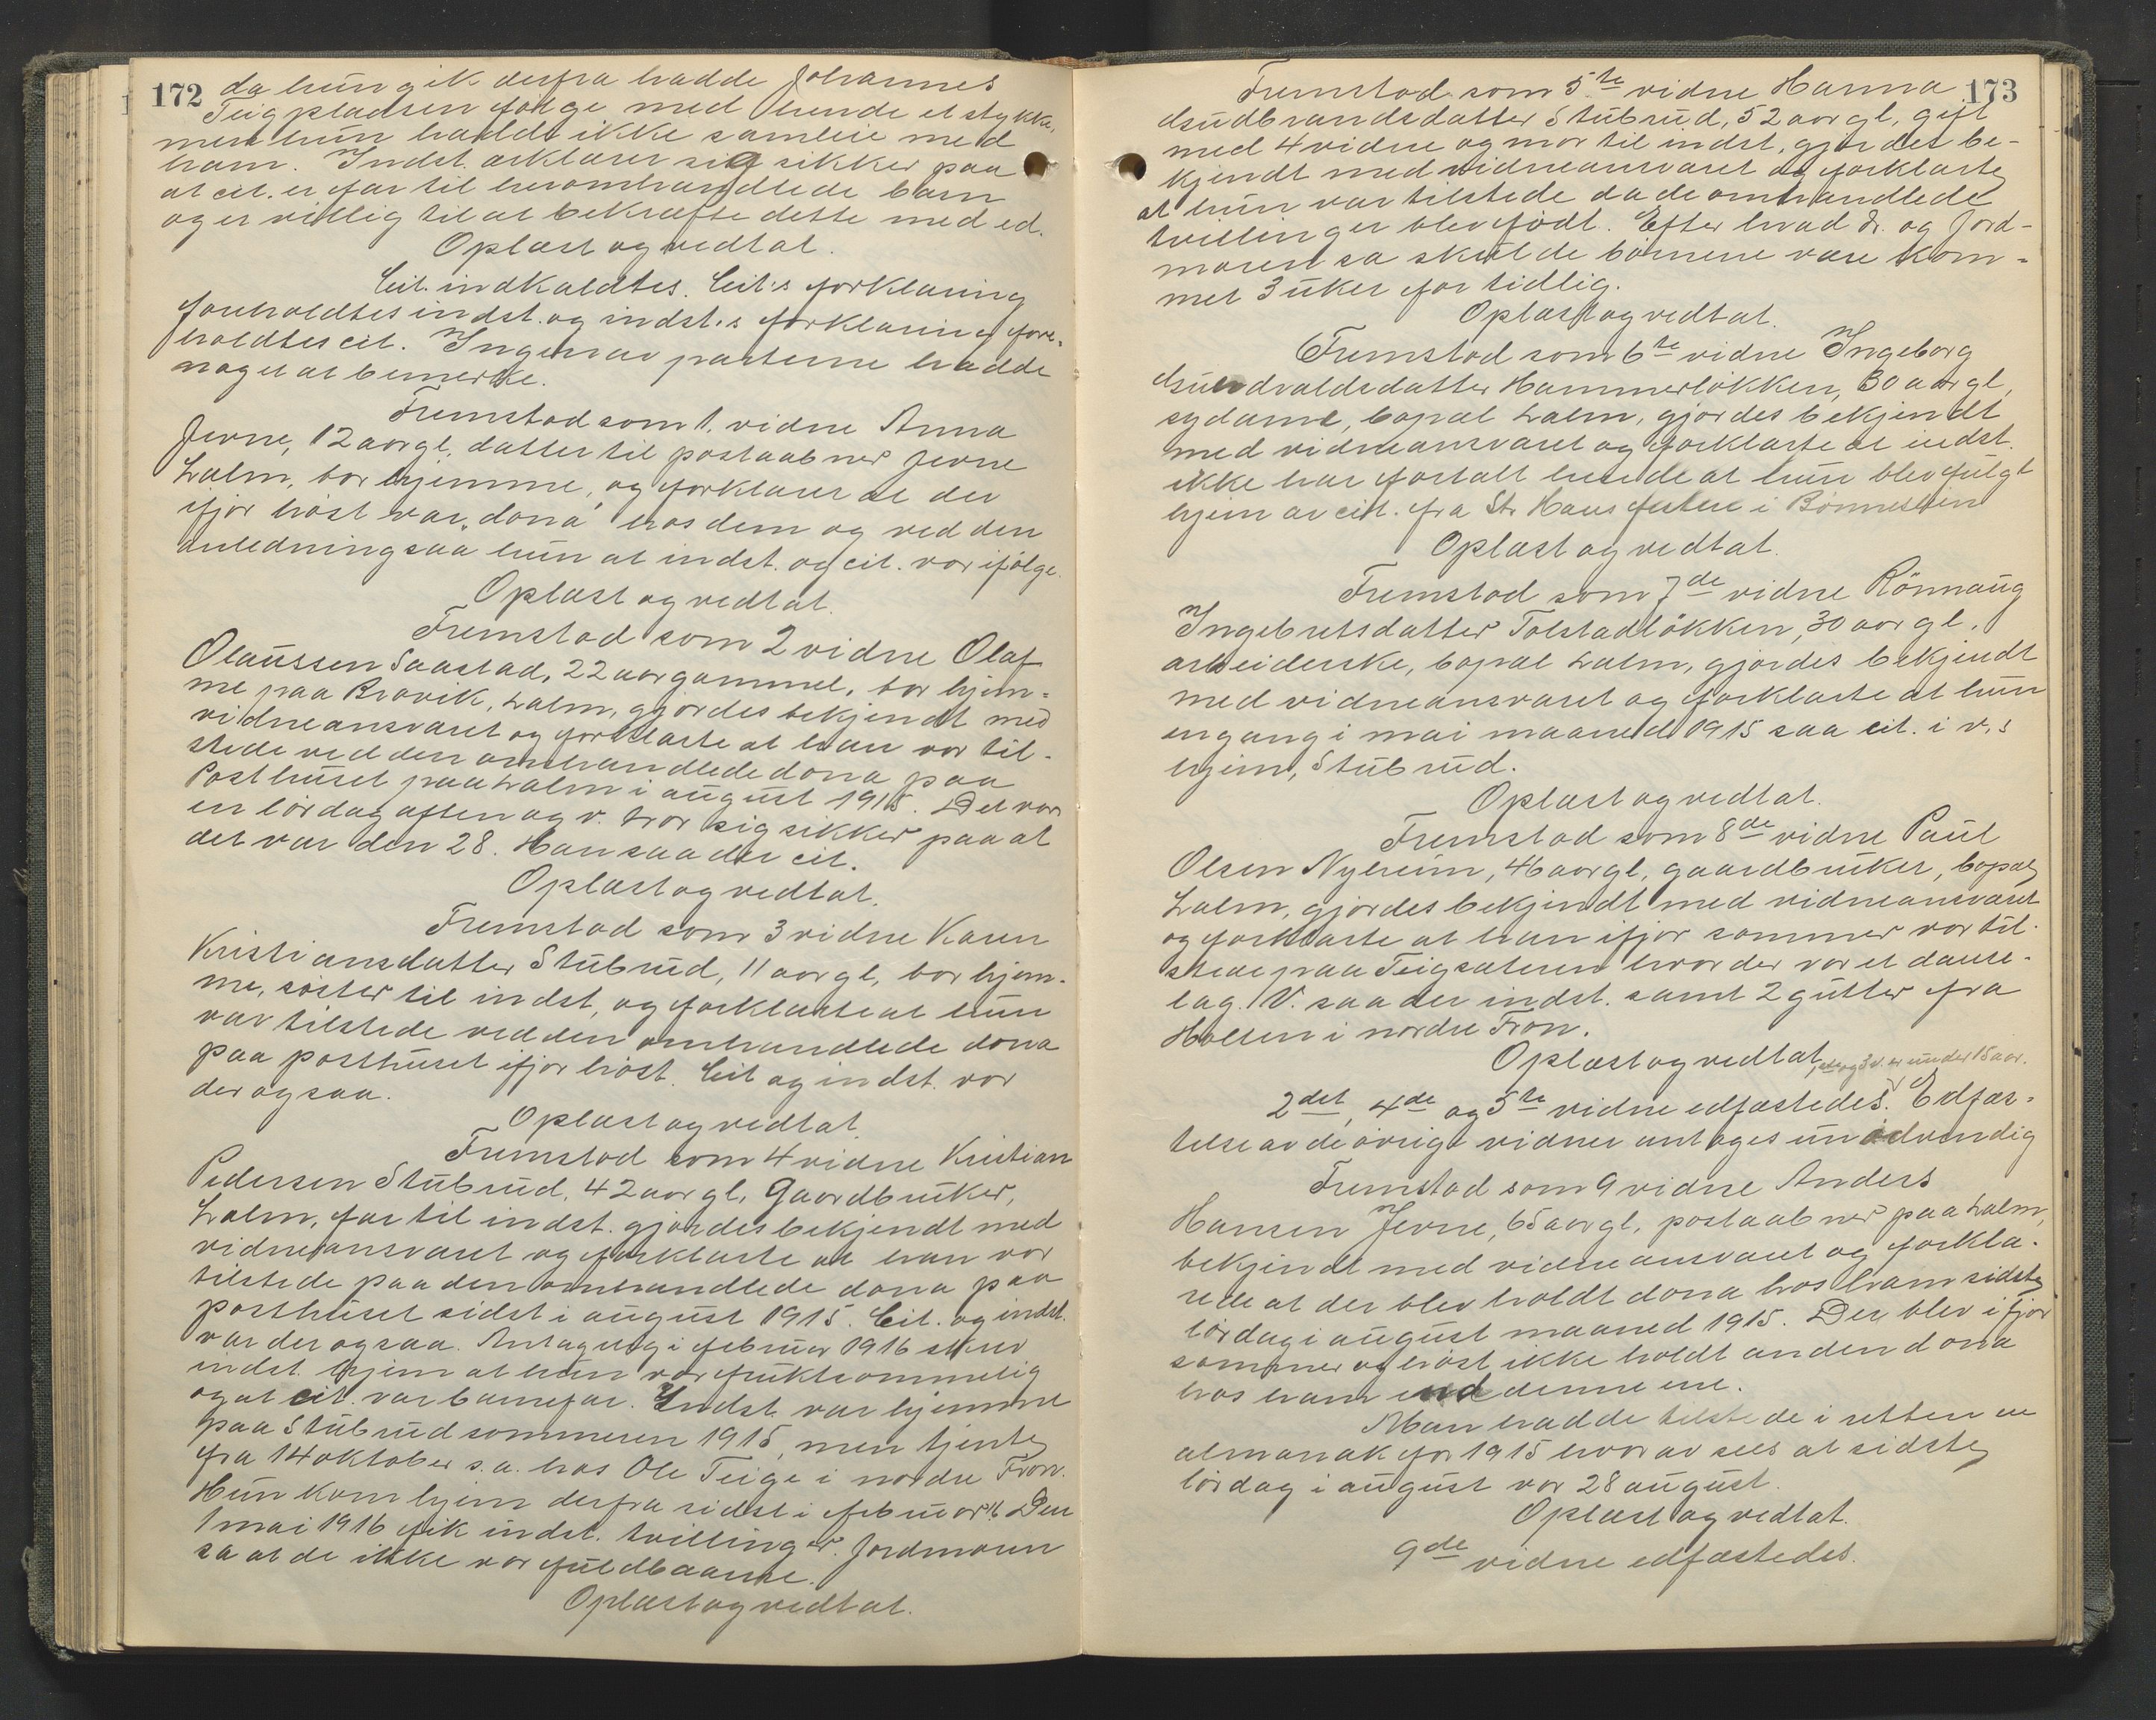 172
da hun gik derfra hadde Johannes
Teigpladsen følge med hende et stykke,
men hun hadde ikke samleie med
ham. Indst. erklærer sig sikker paa
at cit. er far til heromhandlede barn
og er villig til at bekræfte dette med ed.
Oplæst og vedtat.
Cit. indkaldtes. Cit:s forklaring
foreholdtes indst. og indst.s forklaring fore-
holdtes cit. Ingen av parterne hadde
noget at bemerke.
Fremstod som 1. vidne Anna
Jerne, 12 aar gl, datter til postaabner Jerne
Lalm, bor hjemme, og forklarer at der
ifjor høst var "dona" hos dem og ved den
anledning saa hun at indst. og cit. var ifølge.
Oplæst og vedtat.
Fremstod som 2 vidne Olaf
Olaussen Saastad, 22 aar gammel, bor hjem-
me paa Bravik, Lalm, gjordes bekjendt med
vidneansvaret og forklarte at han var til-
stede ved den omhandlede dona paa
Posthuset paa Lalm i august 1915. Det var
en lørdag aften og v. tror sig sikker paa at
det var den 28. Han saa der cit.
Oplæst og vedtat.
Fremstod som 3 vidne Karen
Kristiansdatter Stubrud, 11 aar gl, bor hjem-
me, søster til indst, og forklarte at hun
var tilstede ved den omhandlede dona
paa posthuset ifjor høst. Cit og indst. var
der ogsaa.
Oplæst og vedtat.
Fremstod som 4 vidne Kristian
Pedersen Stubrud, 42 aar gl, Gaardbruker,
Lalm, far til indst. gjordes bekjendt med
vidneansvaret og forklarte at han var
tilstede paa den omhandlede dona paa
posthuset sidst i august 1915. Cit. og indst.
var der ogsaa. Antagelig i februar 1916 skrev
indst. hjem at hun var fruktsommelig
og at cit. var barnefar. Indst. var hjemme
paa Stubrud sommeren 1915, men tjente
fra 14 oktober s.a. hos Ole Teige i nordre Fron.
Hun kom hjem derfra sidst i februar 16. Den
1 mai 1916 fik indst. tvillinger. Jordmoren
sa at de ikke var fuldbaarne.
Oplæst og vedtat.
173
Fremstod som 5te vidne Hanna
Gudbrandsdatter Stubrud, 52 aar gl, gift
med 4 vidne og mor til indst, gjordes be-
kjendt med vidneansvaret og forklarte
at hun var tilstede da de omhandlede
tvillinger blev født. Efter hvad dr. og Jord-
moren sa skulde børnene være kom-
met 3 uker for tidlig.
Oplæst og vedtat.
Fremstod som 6te vidne Ingeborg
Gundvaldsdatter Hammerløkken, 30 aar gl,
sydame, bopæl Lalm, gjordes bekjendt
med vidneansvaret og forklarte at indst.
ikke har fortalt hende at hun blev fulgt
hjem av cit. fra St. Hans festen i
Oplæst og vedtat.
Fremstod som 7de vidne Rønnaug
Ingebretsdatter Tolstadløkken, 30 aar gl.
arbeiderske, bopæl Lalm, gjordes bekjendt
med vidneansvaret og forklarte at hun
engang i mai maaned 1915 saa cit. i v.s
hjem, Stubrud.
Oplæst og vedtat.
Fremstod som 8de vidne Paul
Olsen Nyheim, 46 aar gl, gaardbruker, bopæl
Lalm, gjordes bekjendt med vidneansvaret
og forklarte at han ifjor sommer var til-
stede paa Teigsæteren hvor der var et danse-
lag. V. saa der indst. samt 2 gutter fra
Holten i nordre Fron.
Oplæst og vedtat, og 3 v. er under 15 aar.
2det, 4de og 5te vidne edfæstedes. Edfæs-
telse av de øvrige vidner antages unødvendig
Fremstod som 9 vidne Anders
Hansen Jerne, 65 aar gl, postaabner paa Lalm,
bekjendt med vidneansvaret og forkla-
rede at der blev holdt dona hos ham sidste
lørdag i august maaned 1915. Der blev i fjor
sommer og høst ikke holdt anden dona
hos ham end denne ene.
Man hadde tilstede i retten en
almanak for 1915 hvorav sees at sidste
lørdag i august var 28 august.
Oplæst og vedtat.
9de vidne edfæstedes.